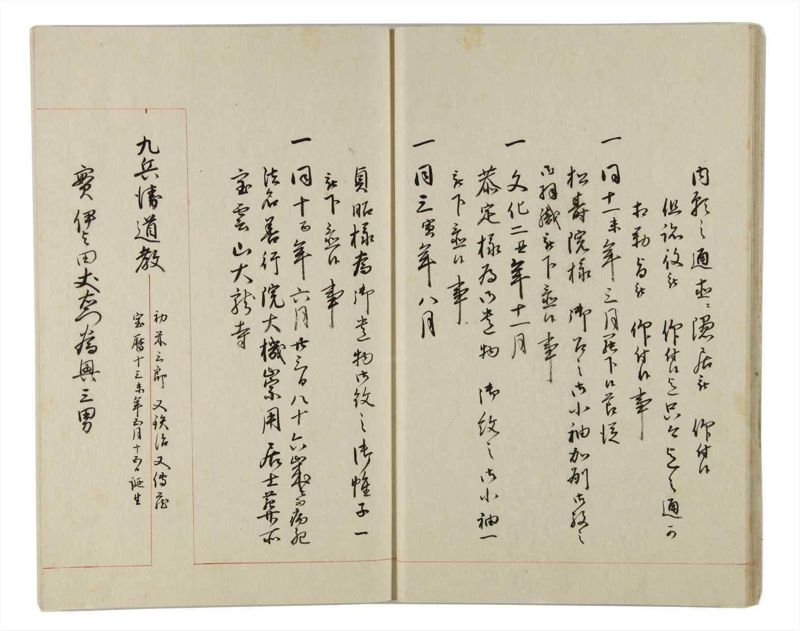 内願之通直ニ隠居被 仰付候
但諸役被 仰付置只今迄之通可
相勤旨被 仰付候事
一 同十一未年三月罷下候節従
松寿院様 御召之御小袖加別御紋之
御羽織被下置候事
一 文化二丑年十一月
恭定様為御遺物 御紋之御小袖一
被下置候事
一 同三寅年八月
貞昭様為御遺物御紋之御帷子一
被下置候事
一 同十酉年六月廿三日八十六歳而病死
法名善行院大機崇用居士葬所
宝雲山大龍寺
九兵衛道教
初米三郎 又鉄治 又傳蔵
宝暦十三未年五月十五日誕生
實伊与田丈右衛門為興三男